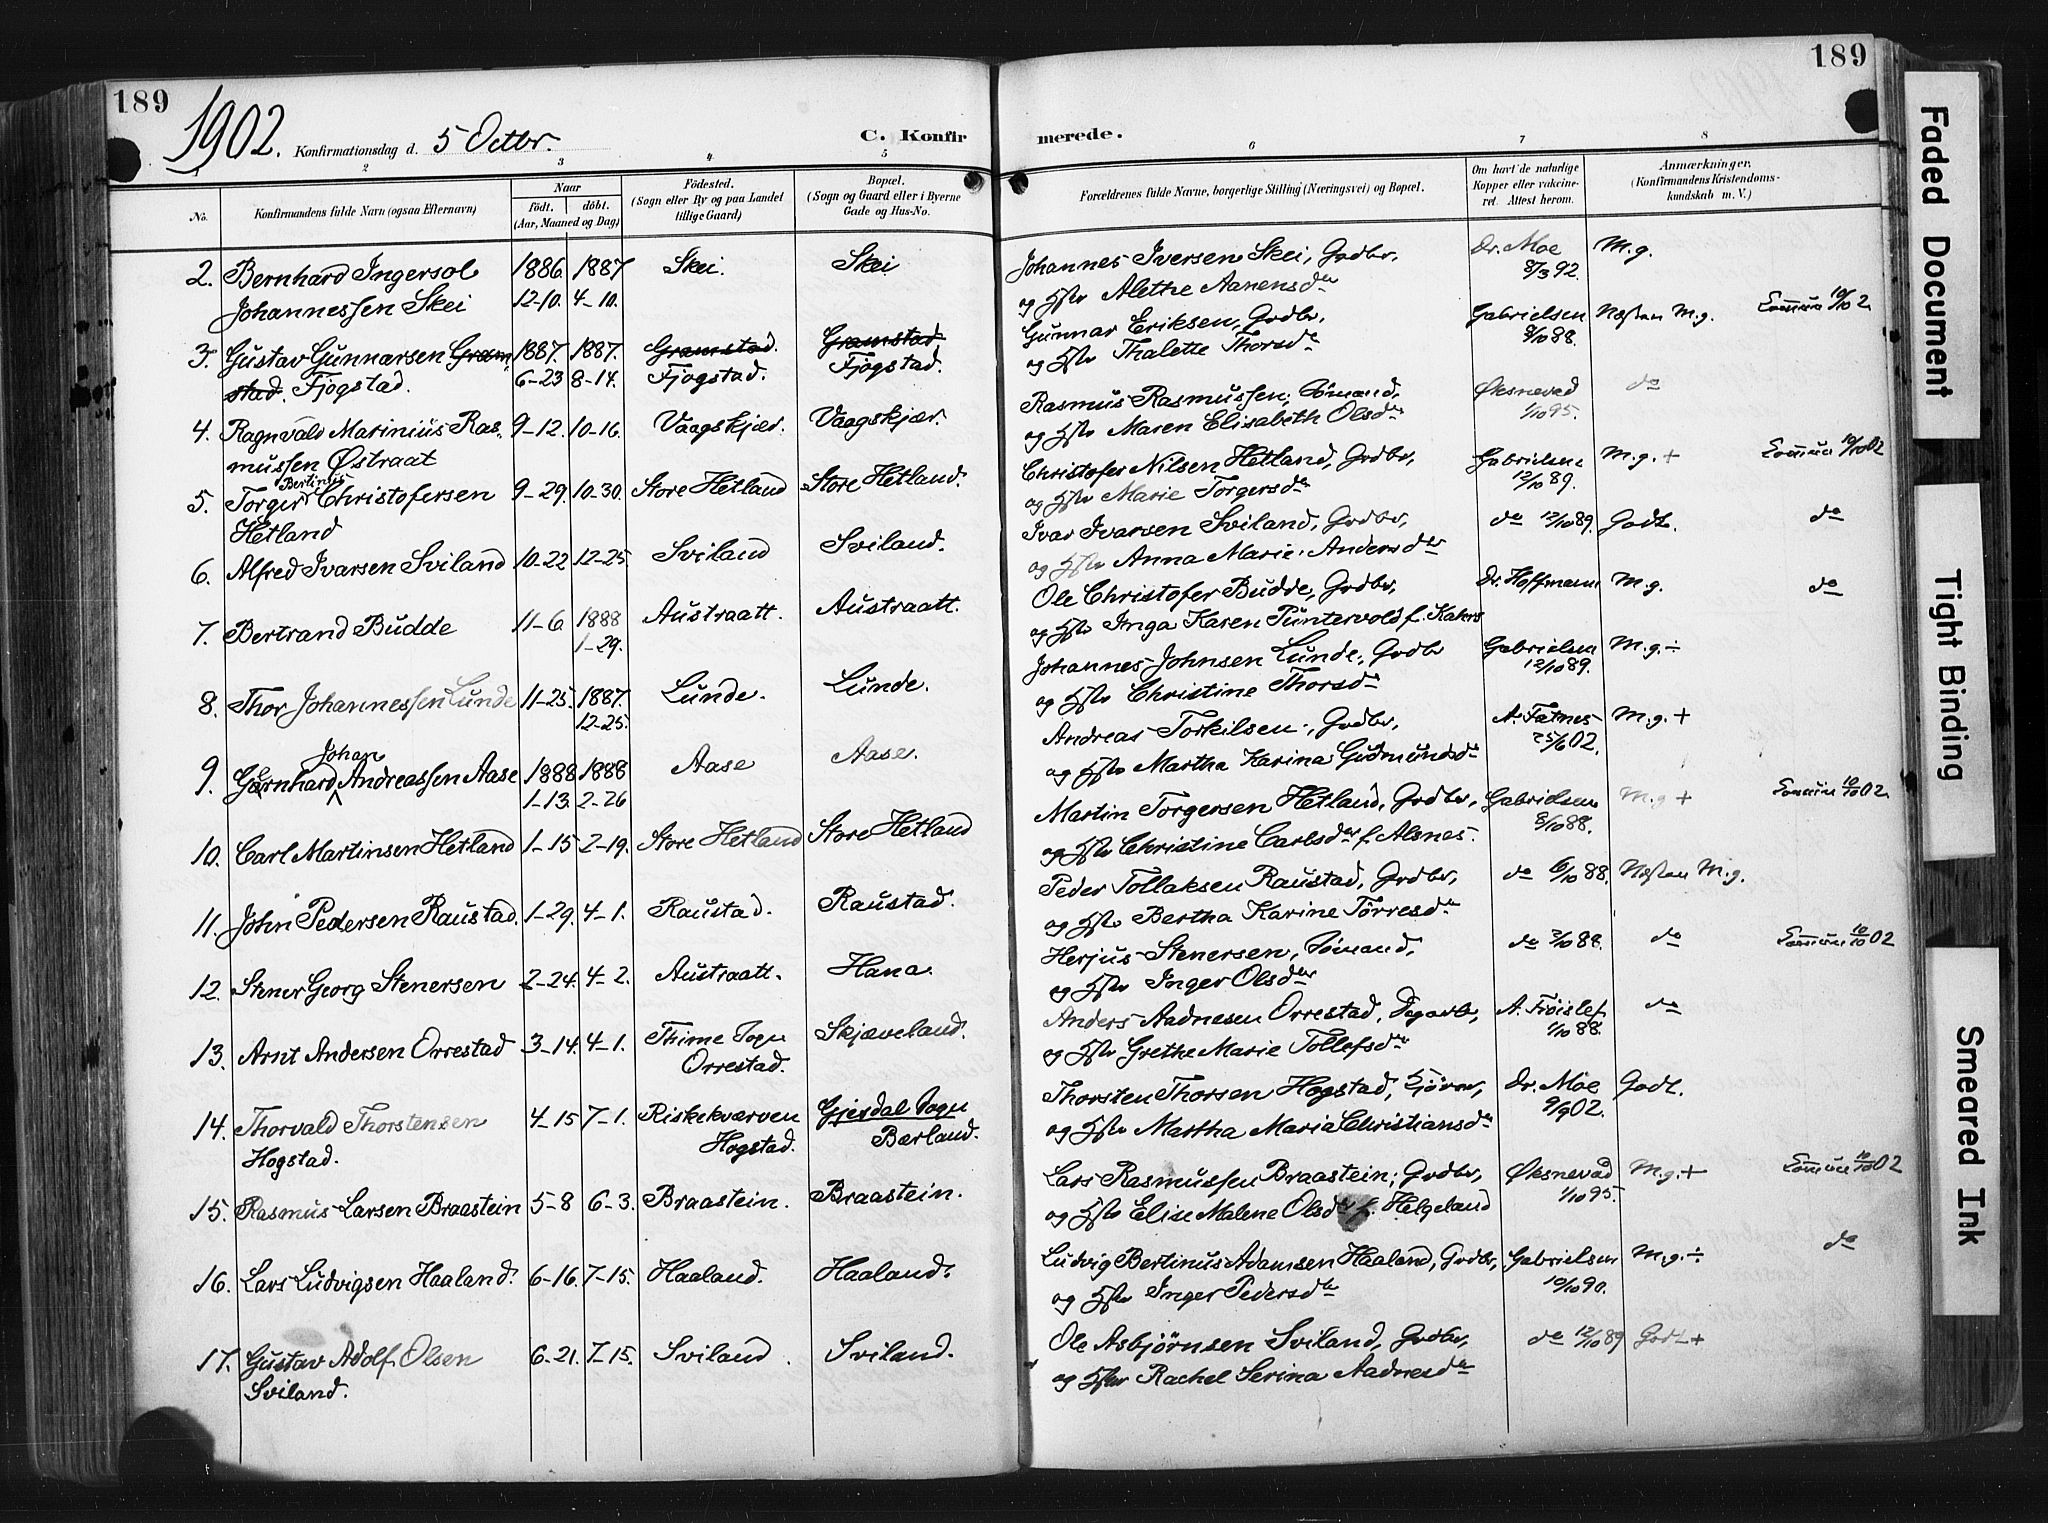 189
189
1902. Konfirmationsdag d. 5 Octbr.
C. Konfirmerede.
2 3 4 5 6 7 8
No. Konfirmandens fulde Navn (ogsaa Efternavn) Naar födt. döbt. (Aar, Maaned og Dag) Födested. (Sogn eller By og paa Landet tillige Gaard) Bopæl. (Sogn og Gaard eller i Byerne Gade og Hus-No. Forældrenes fulde Navne, borgerlige Stilling (Næringsvei) og Bopæl. Om havt de naturlige Kopper eller vakcineret. Attest herom. Anmærkninger. (Konfirmandens Kristendomskundskab m. V.)
2. Bernhard Ingersol 1886. 1887 Skei. Skei Johannes Iversen Skei, Grdbr, Dr. Moe M.g.
Johannessen Skei 12-10. 4-10. og Hstr Alethe Aanensdtr 8/3 92.
3. Gustav Gunnarsen Gram- 1887. 1887. Gramstad. Gramstad Gunnar Eriksen, Grdbr, Gabrielsen Næsten M.g. 10/10 2
stad. Fjogstad. 6-23 8-14. Fjogstad. Fjogstad. og Hstr Thalette Thorsdtr 8/10 88.
4. Ragnvald Marinius Ras- 9-12. 10-16. Vaagskjær. Vaagskjær. Rasmus Rasmussen, Sømand, Øksnevad do
mussen Østraat og Hstr Maren Elisabeth Olsdtr 1/10 95.
Bertinus
5. Torger Christofersen 9-29. 10-30. Store Hetland Store Hetland. Christofer Nilsen Hetland, Grdbr, Gabrielsen M.g. + 10/10 02
Hetland og Hstr Marie Torgersdtr 12/10 89.
6. Alfred Ivarsen Sviland 10-22 12-25. Sviland Sviland. Ivar Ivarsen Sviland, Grdbr, do 12/10 89. Godt. do
og Hstr Anna Marie Andersdtr
7. Bertrand Budde 11-6 1888 Austraatt. Austraatt. Ole Christofer Budde, Grdbr, Dr. Hoffmann M.g. do
1-29. og Hstr Inga Karen Puntervold f. Kahrs
8. Thor Johannessen Lunde 11-25. 1887. Lunde. Lunde. Johannes Johnsen Lunde, Grdbr Gabrielsen M.g. ÷
12-25. og Hstr Christine Thorsdtr 12/10 89.
Johan
9. Gernhard Andreassen Aase 1888 1888 Aase Aase. Andreas Torkilsen, Grdbr, A. Fatnes M.g. +
1-13. 2-26 og Hstr Martha Karina Gudmundsdtr 25/6 02.
10. Carl Martinsen Hetland 1-15 2-19. Store Hetland Store Hetland Martin Torgersen Hetland, Grdbr, Gabrielsen M.g + 10/10 02
og Hstr Christine Carlsdtr f. Alsnes. 8/10 88.
11. John Pedersen Raustad. 1-29. 4-1. Raustad. Raustad. Peder Tollaksen Raustad, Grdbr, do 6/10 88. Næsten M.g.
og Hstr Bertha Karine Tørresdtr
12. Stener Georg Stenersen 2-24. 4-2. Austraatt. Hana. Herjus Stenersen, Sømand, do 3/10 88. do 10/10 02
og Hstr Inger Olsdtr
13. Arnt Andersen Orrestad 3-14. 4-1. Thime Sogn Skjæveland. Anders Aadnesen Orrestad, A. Frøislef do
Orrestad. og Hstr Grethe Marie Tollefsdtr 1/10 88.
14. Thorvald Thorstensen 4-15 7-1. Riskekværven Gjesdal Sogn Thorsten Thorsen Hogstad, Dr. Moe Godt.
Hogstad. Hogstad. Bærland. og Hstr Martha Maria Christiansdtr 9/9 02.
15. Rasmus Larsen Braastein 5-8 6-3. Braastein. Braastein. Lars Rasmussen Braastein, Grdbr, Øksnevad M.g. + 10/10 02
og Hstr Elise Malene Olsdtr f. Helgeland 1/10 95.
16. Lars Ludvigsen Haaland. 6-16. 7-15. Haaland. Haaland. Ludvig Bertinus Adamsen Haaland, Grdbr, Gabrielsen M.g. ÷ do
og Hstr Inger Pedersdtr 10/10 90.
17. Gustav Adolf Olsen 6-21. 7-15. Sviland. Sviland. Ole Asbjørnsen Sviland, Grdbr, do 12/10 89 Godt +
Sviland. og Hstr Rachel Serina Aadnesdtr
Faded Document
Tight Binding
Smeared Ink